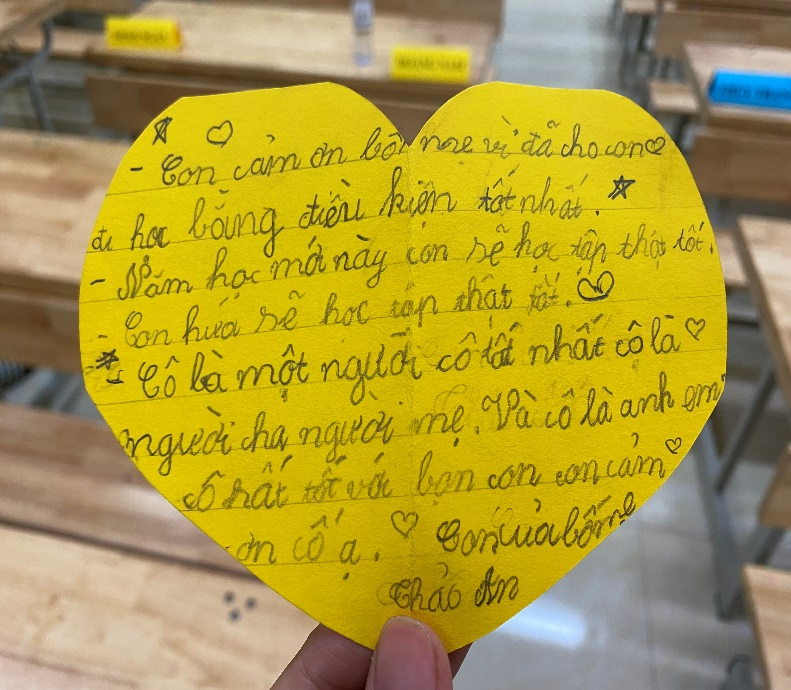 - Con cảm ơn bố mẹ vì đã cho con
đi học bằng điều kiện tốt nhất.
- Năm học mới này con sẽ học tập thật tốt.
- Con hứa sẽ học tập thật tốt.
- Cô là một người cô tốt nhất cô là
người cha người mẹ. Và cô là anh em
cô rất tốt với bạn con con cảm
ơn cô ạ. Con của bố mẹ
Thảo An